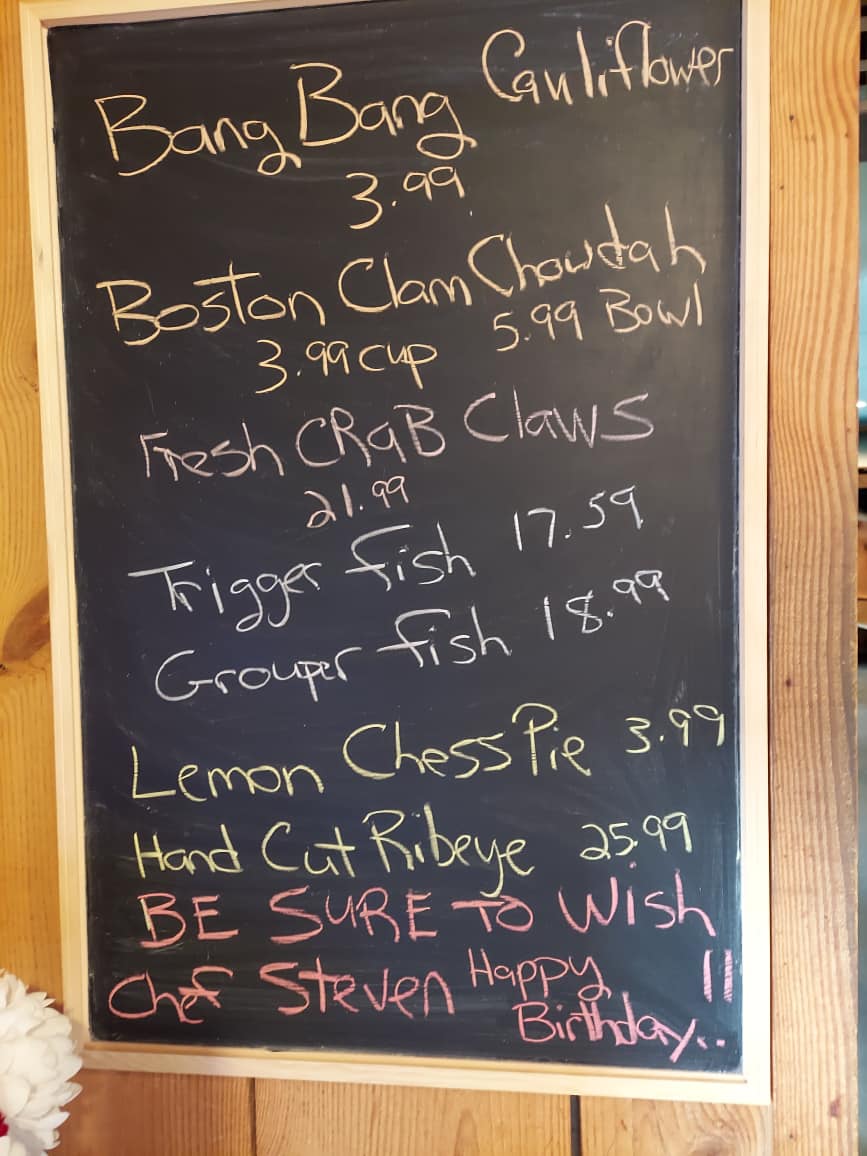 Bang Bang Cauliflower
3.99
Boston Clam Chowdah
3.99 cup 5.99 Bowl
Fresh CRaB Claws
21.99
Trigger fish 17.59
Grouper fish 18.99
Lemon Chess Pie 3.99
Hand Cut Ribeye 25.99
BE SURE TO Wish
Chef Steven Happy
Birthday..!!